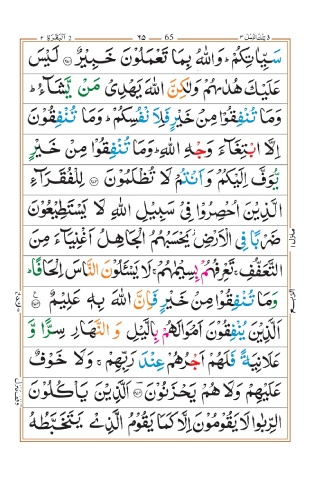 البقرة ٢ ٢٥ 65 تلك الرسل ٣
سَيِّاٰتِكُمْ ؕ وَاللّٰهُ بِمَا تَعْمَلُوْنَ خَبِيْرٌ ﴿۲۷۱﴾ لَيْسَ
عَلَيْكَ هُدٰىهُمْ وَلٰكِنَّ اللّٰهَ يَهْدِيْ مَنْ يَّشَآءُ ؕ
وَمَا تُنْفِقُوْا مِنْ خَيْرٍ فَلِاَنْفُسِكُمْ ؕ وَمَا تُنْفِقُوْنَ
اِلَّا ابْتِغَآءَ وَجْهِ اللّٰهِ ؕ وَمَا تُنْفِقُوْا مِنْ خَيْرٍ
يُّوَفَّ اِلَيْكُمْ وَاَنْتُمْ لَا تُظْلَمُوْنَ ﴿۲۷۲﴾ لِلْفُقَرَآءِ
الَّذِيْنَ اُحْصِرُوْا فِيْ سَبِيْلِ اللّٰهِ لَا يَسْتَطِيْعُوْنَ
ضَرْبًا فِي الْاَرْضِ ؗ يَحْسَبُهُمُ الْجَاهِلُ اَغْنِيَآءَ مِنَ
التَّعَفُّفِ ۚ تَعْرِفُهُمْ بِسِيْمٰهُمْ ۚ لَا يَسْـَٔلُوْنَ النَّاسَ اِلْحَافًا ؕ
وَمَا تُنْفِقُوْا مِنْ خَيْرٍ فَاِنَّ اللّٰهَ بِهٖ عَلِيْمٌ ﴿۲۷۳﴾
اَلَّذِيْنَ يُنْفِقُوْنَ اَمْوَالَهُمْ بِالَّيْلِ وَالنَّهَارِ سِرًّا وَّ
عَلَانِيَةً فَلَهُمْ اَجْرُهُمْ عِنْدَ رَبِّهِمْ ۚ وَلَا خَوْفٌ
عَلَيْهِمْ وَلَا هُمْ يَحْزَنُوْنَ ﴿۲۷۴﴾ اَلَّذِيْنَ يَاْكُلُوْنَ
الرِّبٰوا لَا يَقُوْمُوْنَ اِلَّا كَمَا يَقُوْمُ الَّذِيْ يَتَخَبَّطُهُ